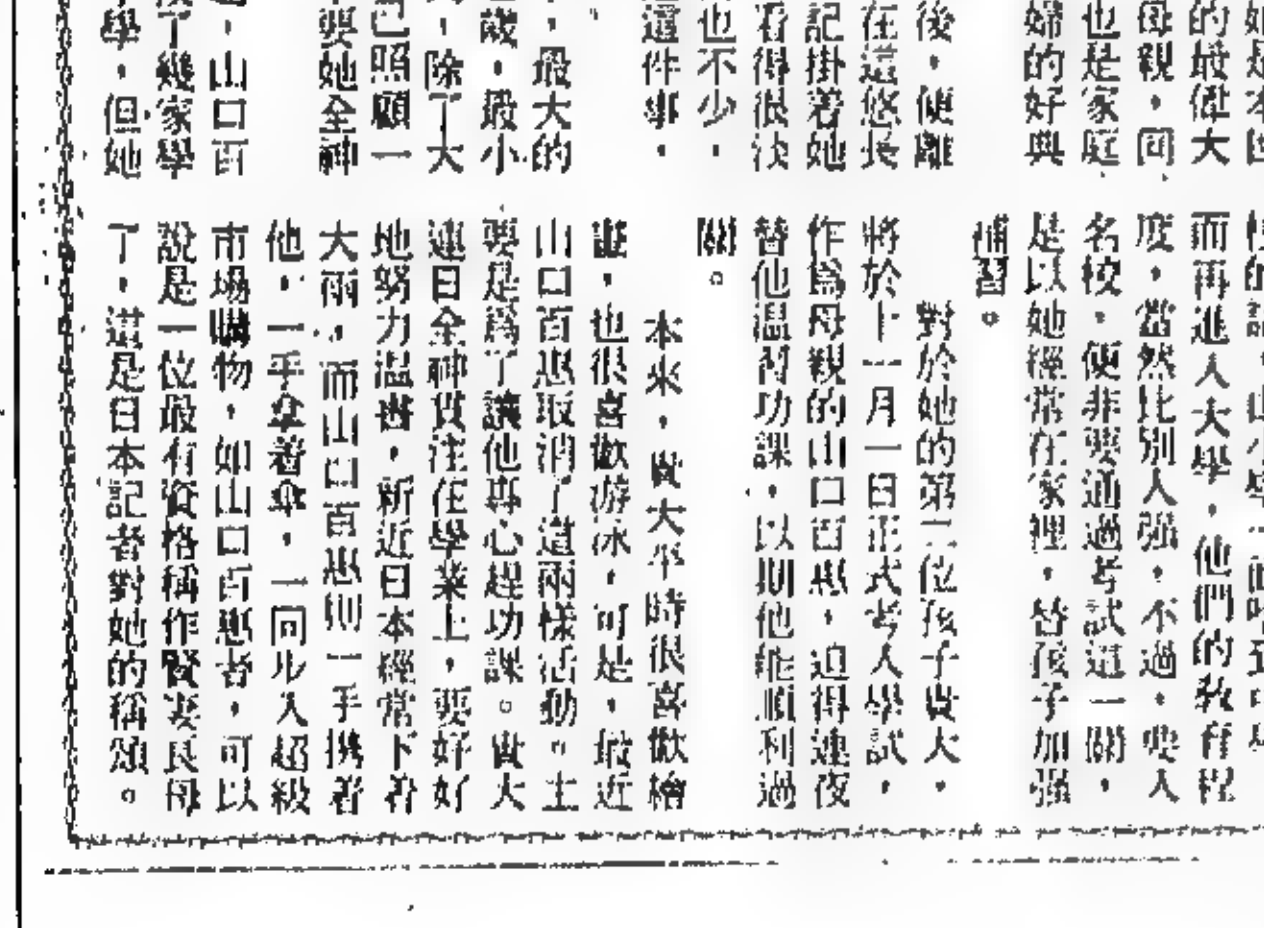 的最偉大
母親，同
也是家庭
婦的好典
後，便離
在這悠長
記掛着她
看得很淡
也不少，
這件事，
，最大的
歲，最小
，除了大
己照顧一
要她全神
，山口百
了幾家學
學，但她
而再進入大學，他們的教育程
度，當然比別人强，不過，要入
名校，便非要通過考試這一關，
是以她經常在家裡，替孩子加强
補習。
對於她的第二位孩子貴大，
將於十一月一日正式考入學試，
作爲母親的山口百惠，迫得連夜
替他温習功課，以期他能順利過
關。
本來，貴大平時很喜歡繪
畫，也很喜歡游泳，可是，最近
山口百惠取消了這兩樣活動。主
要是爲了讓他專心趕功課。貴大
連日全神貫注在學業上，要好好
地努力温書，新近日本經常下着
大雨，而山口百惠則一手携着
他，一手拿着傘，一同步入超級
市場購物，如山口百惠者，可以
說是一位最有資格稱作賢妻良母
了，這是日本記者對她的稱頌。